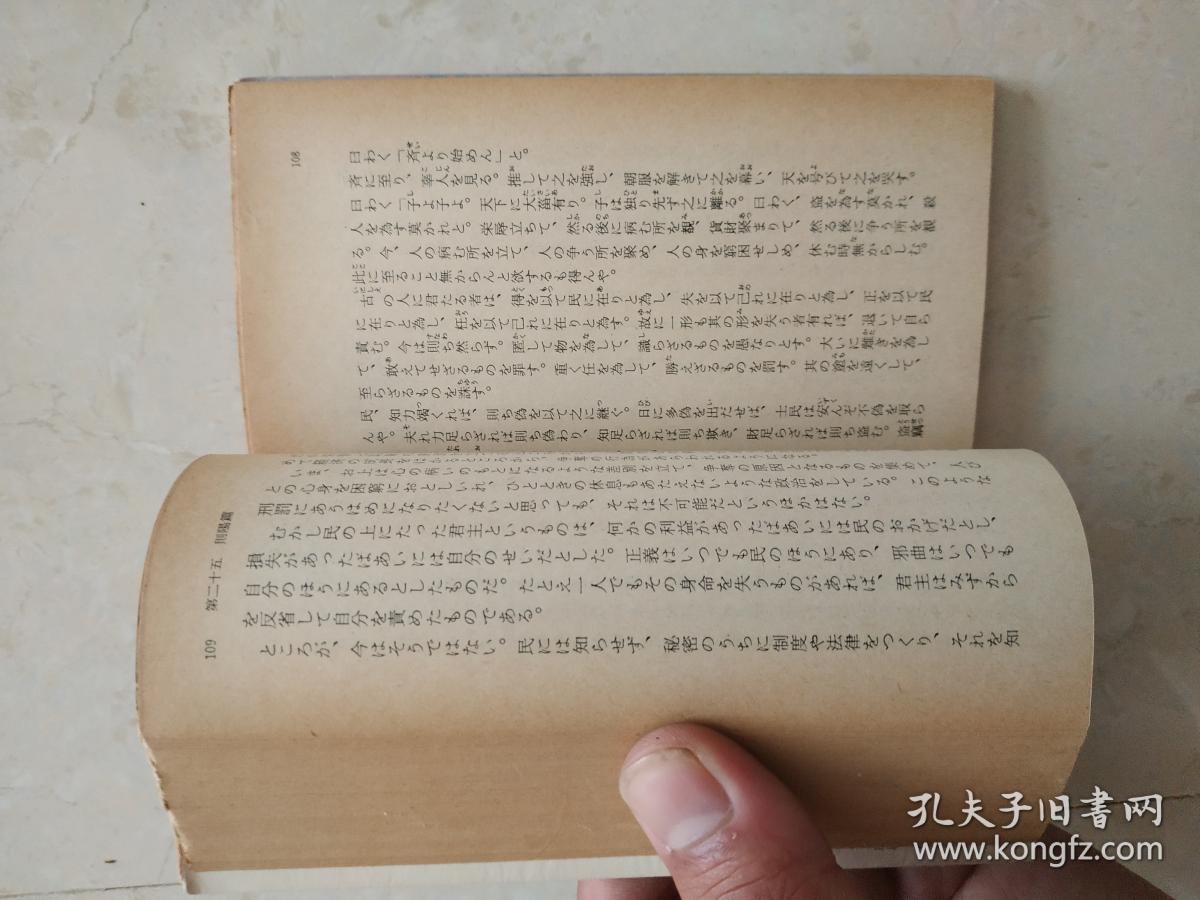 108
曰わく「斉より始めん」と。
斉に至り、辜人を見る。推して之を強し、朝服を解きて之を幕い、天を号びて之を哭す。
曰わく「子よ子よ。天下に大菑有り。子は独り先ず之に離る。曰わく、盗を為す莫かれ、殺
人を為す莫かれと。栄辱立ちて、然る後に病む所を覩、貨財聚まりて、然る後に争う所を覩
る。今、人の病む所を立て、人の争う所を聚め、人の身を窮困せしめ、休む時無からしむ。
此に至ること無からんと欲するも得んや。
古の人に君たる者は、得を以て民に在りと為し、失を以て己れに在りと為し、正を以て民
に在りと為し、枉を以て己れに在りと為す。故に一形も其の形を失う者有れば、退いて自ら
責む。今は則ち然らず。匿して物を為して、識らざるものを愚なりとす。大いに難きを為し
て、敢えてせざるものを罪す。重く任を為して、勝えざるものを罰す。其の塗を遠くして、
至らざるものを誅す。
民、知力竭くれば、則ち偽を以て之に継ぐ。日に多偽を出だせば、士民は安んぞ不偽を取ら
んや。夫れ力足らざれば則ち偽わり、知足らざれば則ち欺き、財足らざれば則ち盗む。盗竊
いま、お上は心の病いのもとになるような差別を立て、争奪の原因となるものを集めて、人び
との心身を困窮におとしいれ、ひとときの休息もあたえないような政治をしている。このような
刑罰にあうはめになりたくないと思っても、それは不可能だというほかはない。
むかし民の上にたった君主というものは、何かの利益があったばあいには民のおかげだとし、
損失があったばあいには自分のせいだとした。正義はいつでも民のほうにあり、邪曲はいつでも
自分のほうにあるとしたものだ。たとえ一人でもその身命を失うものがあれば、君主はみずから
を反省して自分を責めたものである。
ところが、今はそうではない。民には知らせず、秘密のうちに制度や法律をつくり、それを知
109 第二十五 則陽篇
孔夫子旧书网
www.kongfz.com